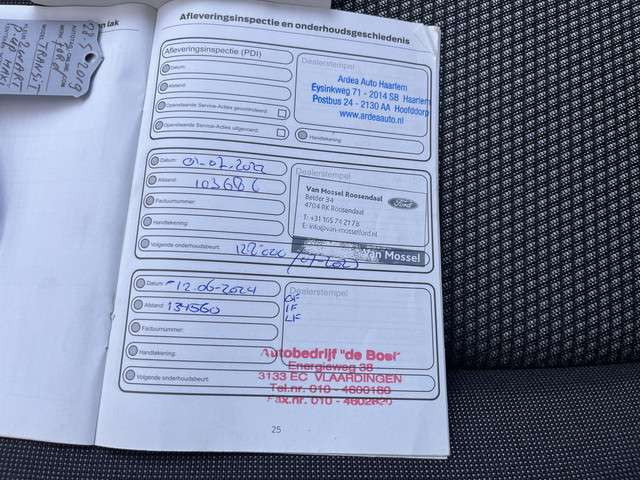 Afleveringsinspectie en onderhoudsgeschiedenis
Afleveringsinspectie (PDI)
Datum:
Afstand:
Openstaande Service-Acties gecontroleerd:
Openstaande Service-Acties uitgevoerd:
Dealerstempel
Ardea Auto Haarlem
Eysinkweg 71 - 2014 SB Haarlem
Postbus 24 - 2130 AA Hoofddorp
www.ardeaauto.nl
Handtekening:
Datum: 01-07-2022
Afstand: 103686
Factuurnummer:
Handtekening:
Volgende onderhoudsbeurt: 128.000
Dealerstempel
Van Mossel Roosendaal
Belder 34
4704 RK Roosendaal
Ford
E: info@van-mosselford.nl
Van Mossel
Datum: 12.06-2024
Afstand: 134560
Factuurnummer:
Handtekening:
Volgende onderhoudsbeurt:
Dealerstempel
OF
IF
LF
Autobedrijf "de Boei"
Energieweg 38
3133 EC VLAARDINGEN
Tel.nr. 010 - 4600180
Fax.nr. 010 - 4602820
25
lak
TRANSIT